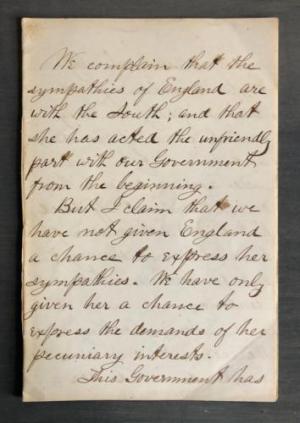 We complain that the
sympathies of England are
with the South; and that
she has acted the unfriendly
part with our Government
from the beginning.
But I claim that we
have not given England
a chance to express her
sympathies. We have only
given her a chance to
express the demands of her
pecuniary interests.
This Government has